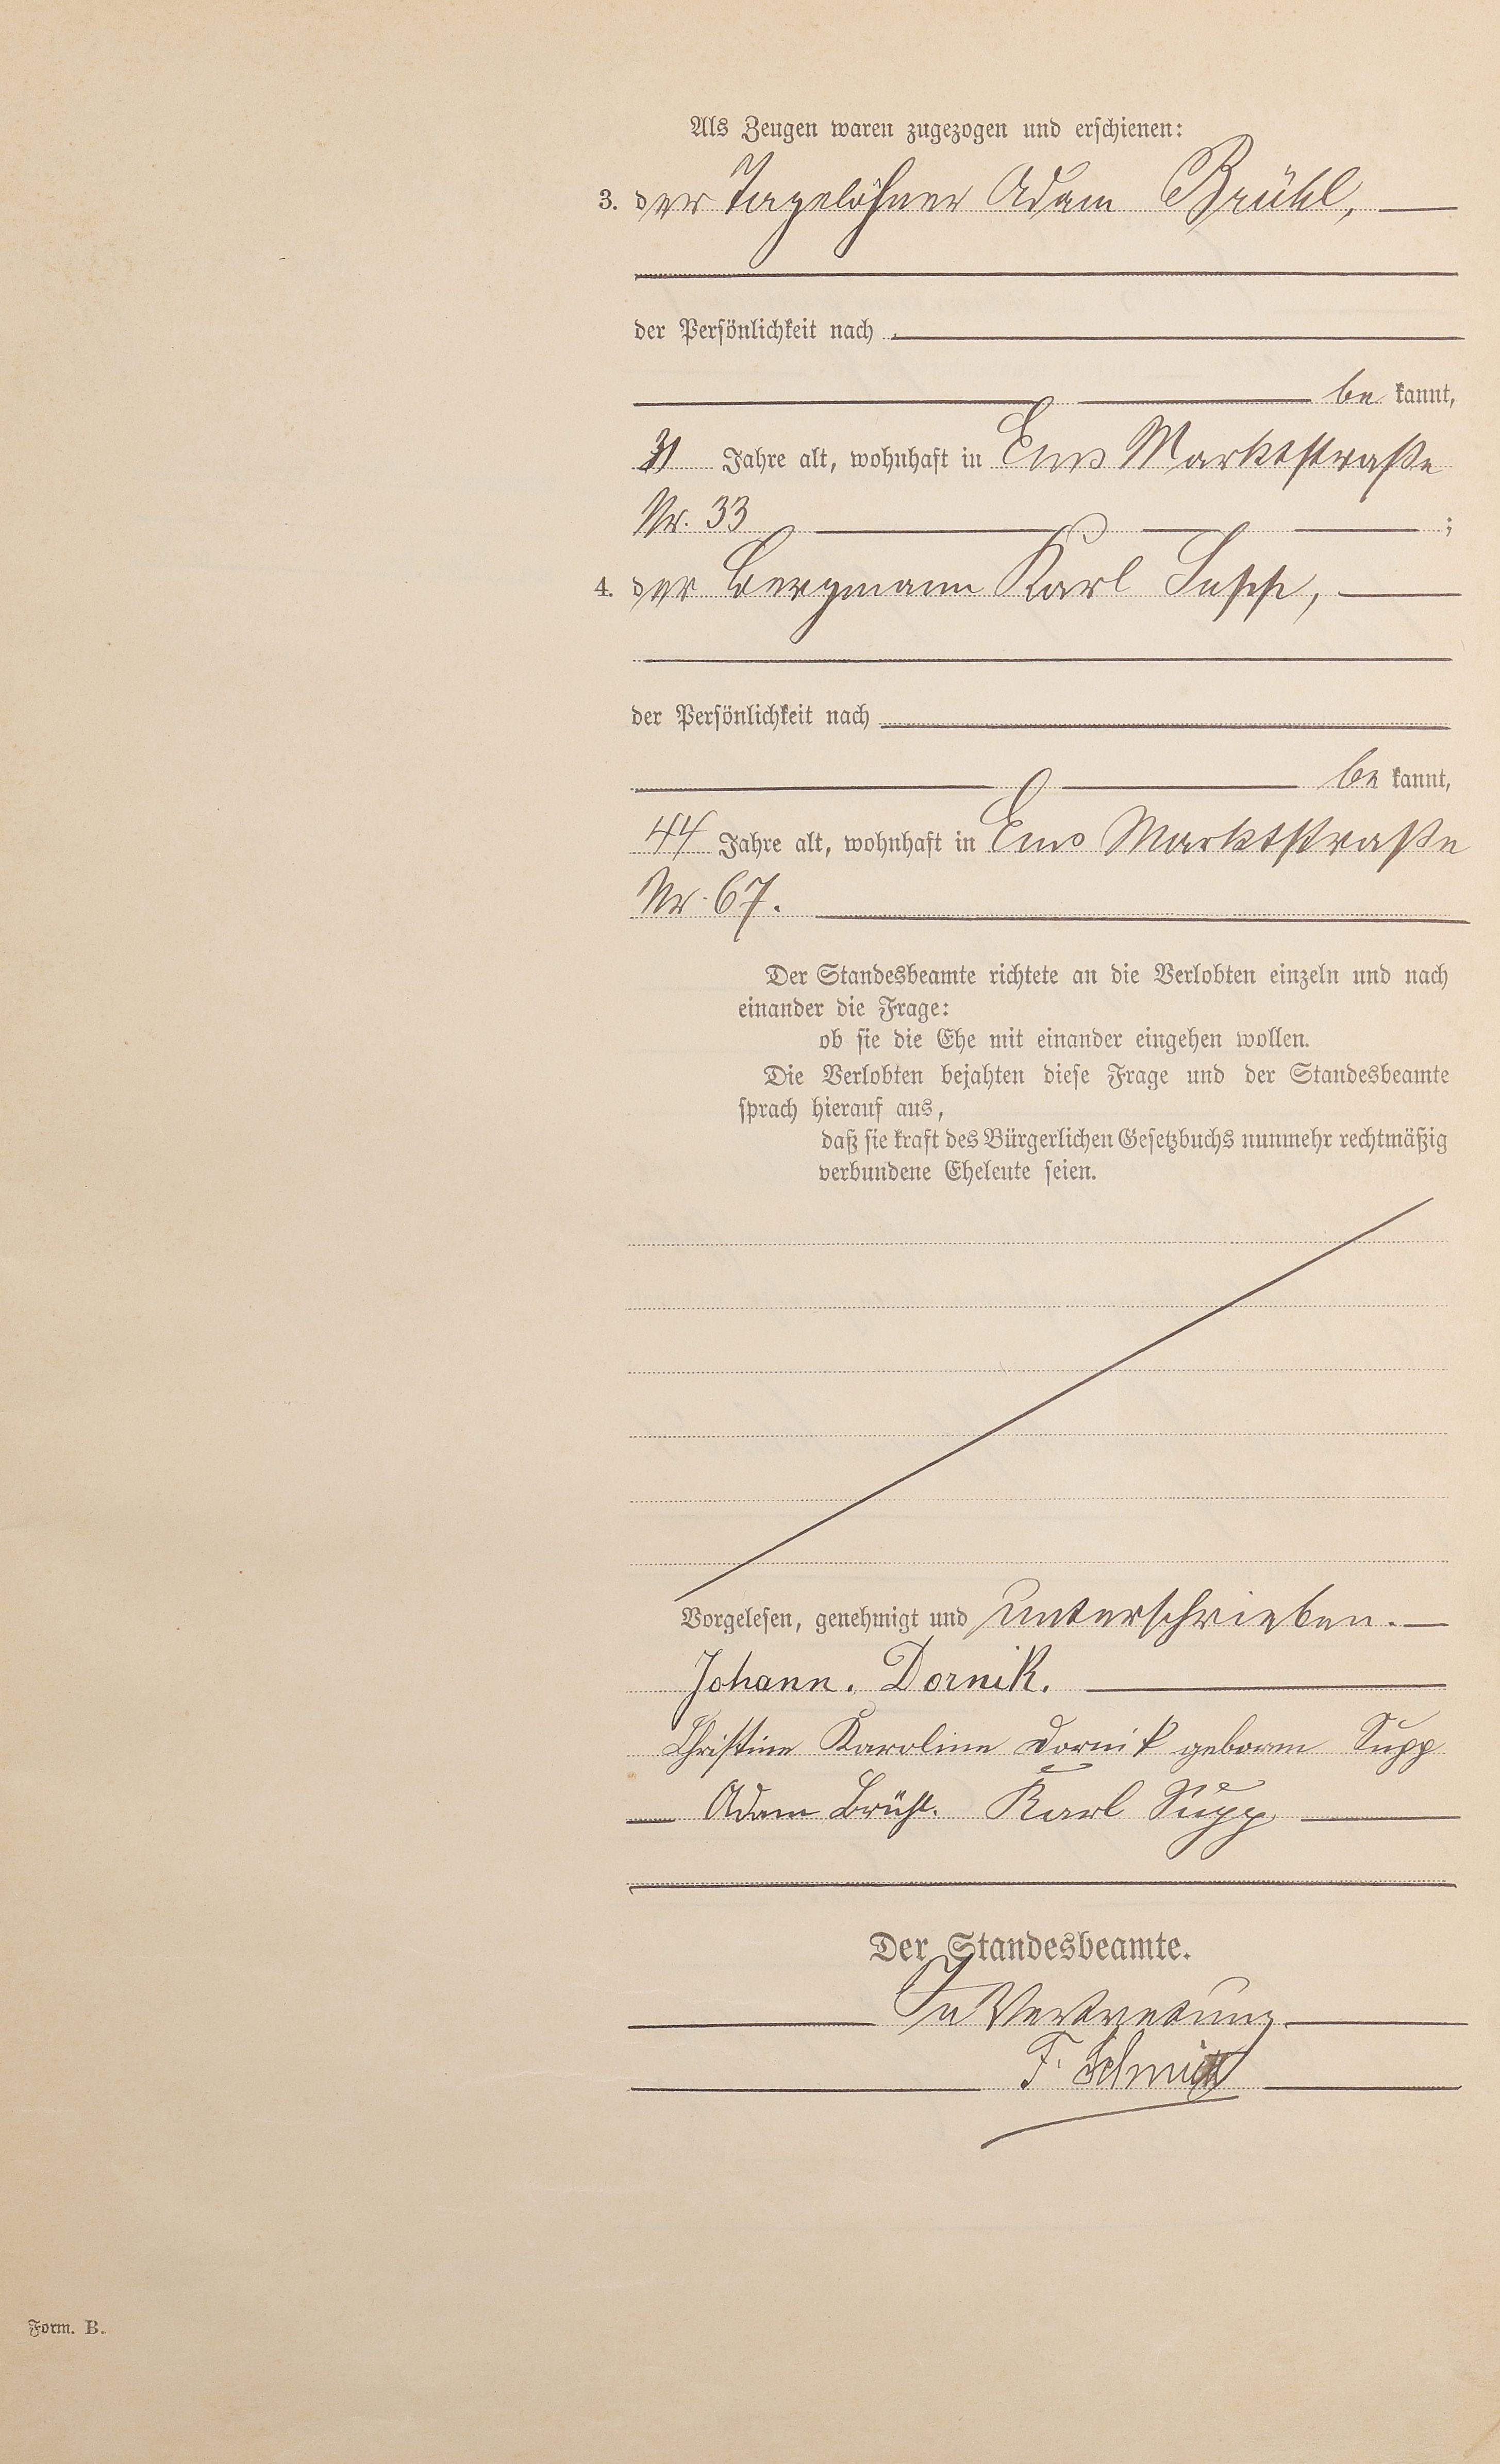 Als Zeugen waren zugezogen und erschienen:
3. der Tagelöhner Adam Brühl,
der Persönlichkeit nach
be kannt,
31 Jahre alt, wohnhaft in Ems Marktstraße
Nr. 33 ;
4. der Bergmann Karl Supp,
der Persönlichkeit nach
be kannt,
44 Jahre alt, wohnhaft in Ems Marktstraße
Nr. 67.
Der Standesbeamte richtete an die Verlobten einzeln und nach
einander die Frage:
ob sie die Ehe mit einander eingehen wollen.
Die Verlobten bejahten diese Frage und der Standesbeamte
sprach hierauf aus,
daß sie kraft des Bürgerlichen Gesetzbuchs nunmehr rechtmäßig
verbundene Eheleute seien.
Vorgelesen, genehmigt und unterschrieben.
Johann. Dornik.
Christine Karoline Dornik geboren Supp
Adam Brühl. Karl Supp
Der Standesbeamte.
In Vertretung
F. Schmitt
Form. B.